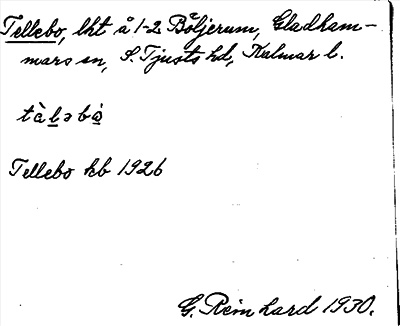 Tellebo, lht å 1-2 Böljerum, Gladham-
mars sn, S. Tjusts hd, Kalmar l.
tàḷəbọ̀
Tellebo kb 1926
G. Reinhard 1930.